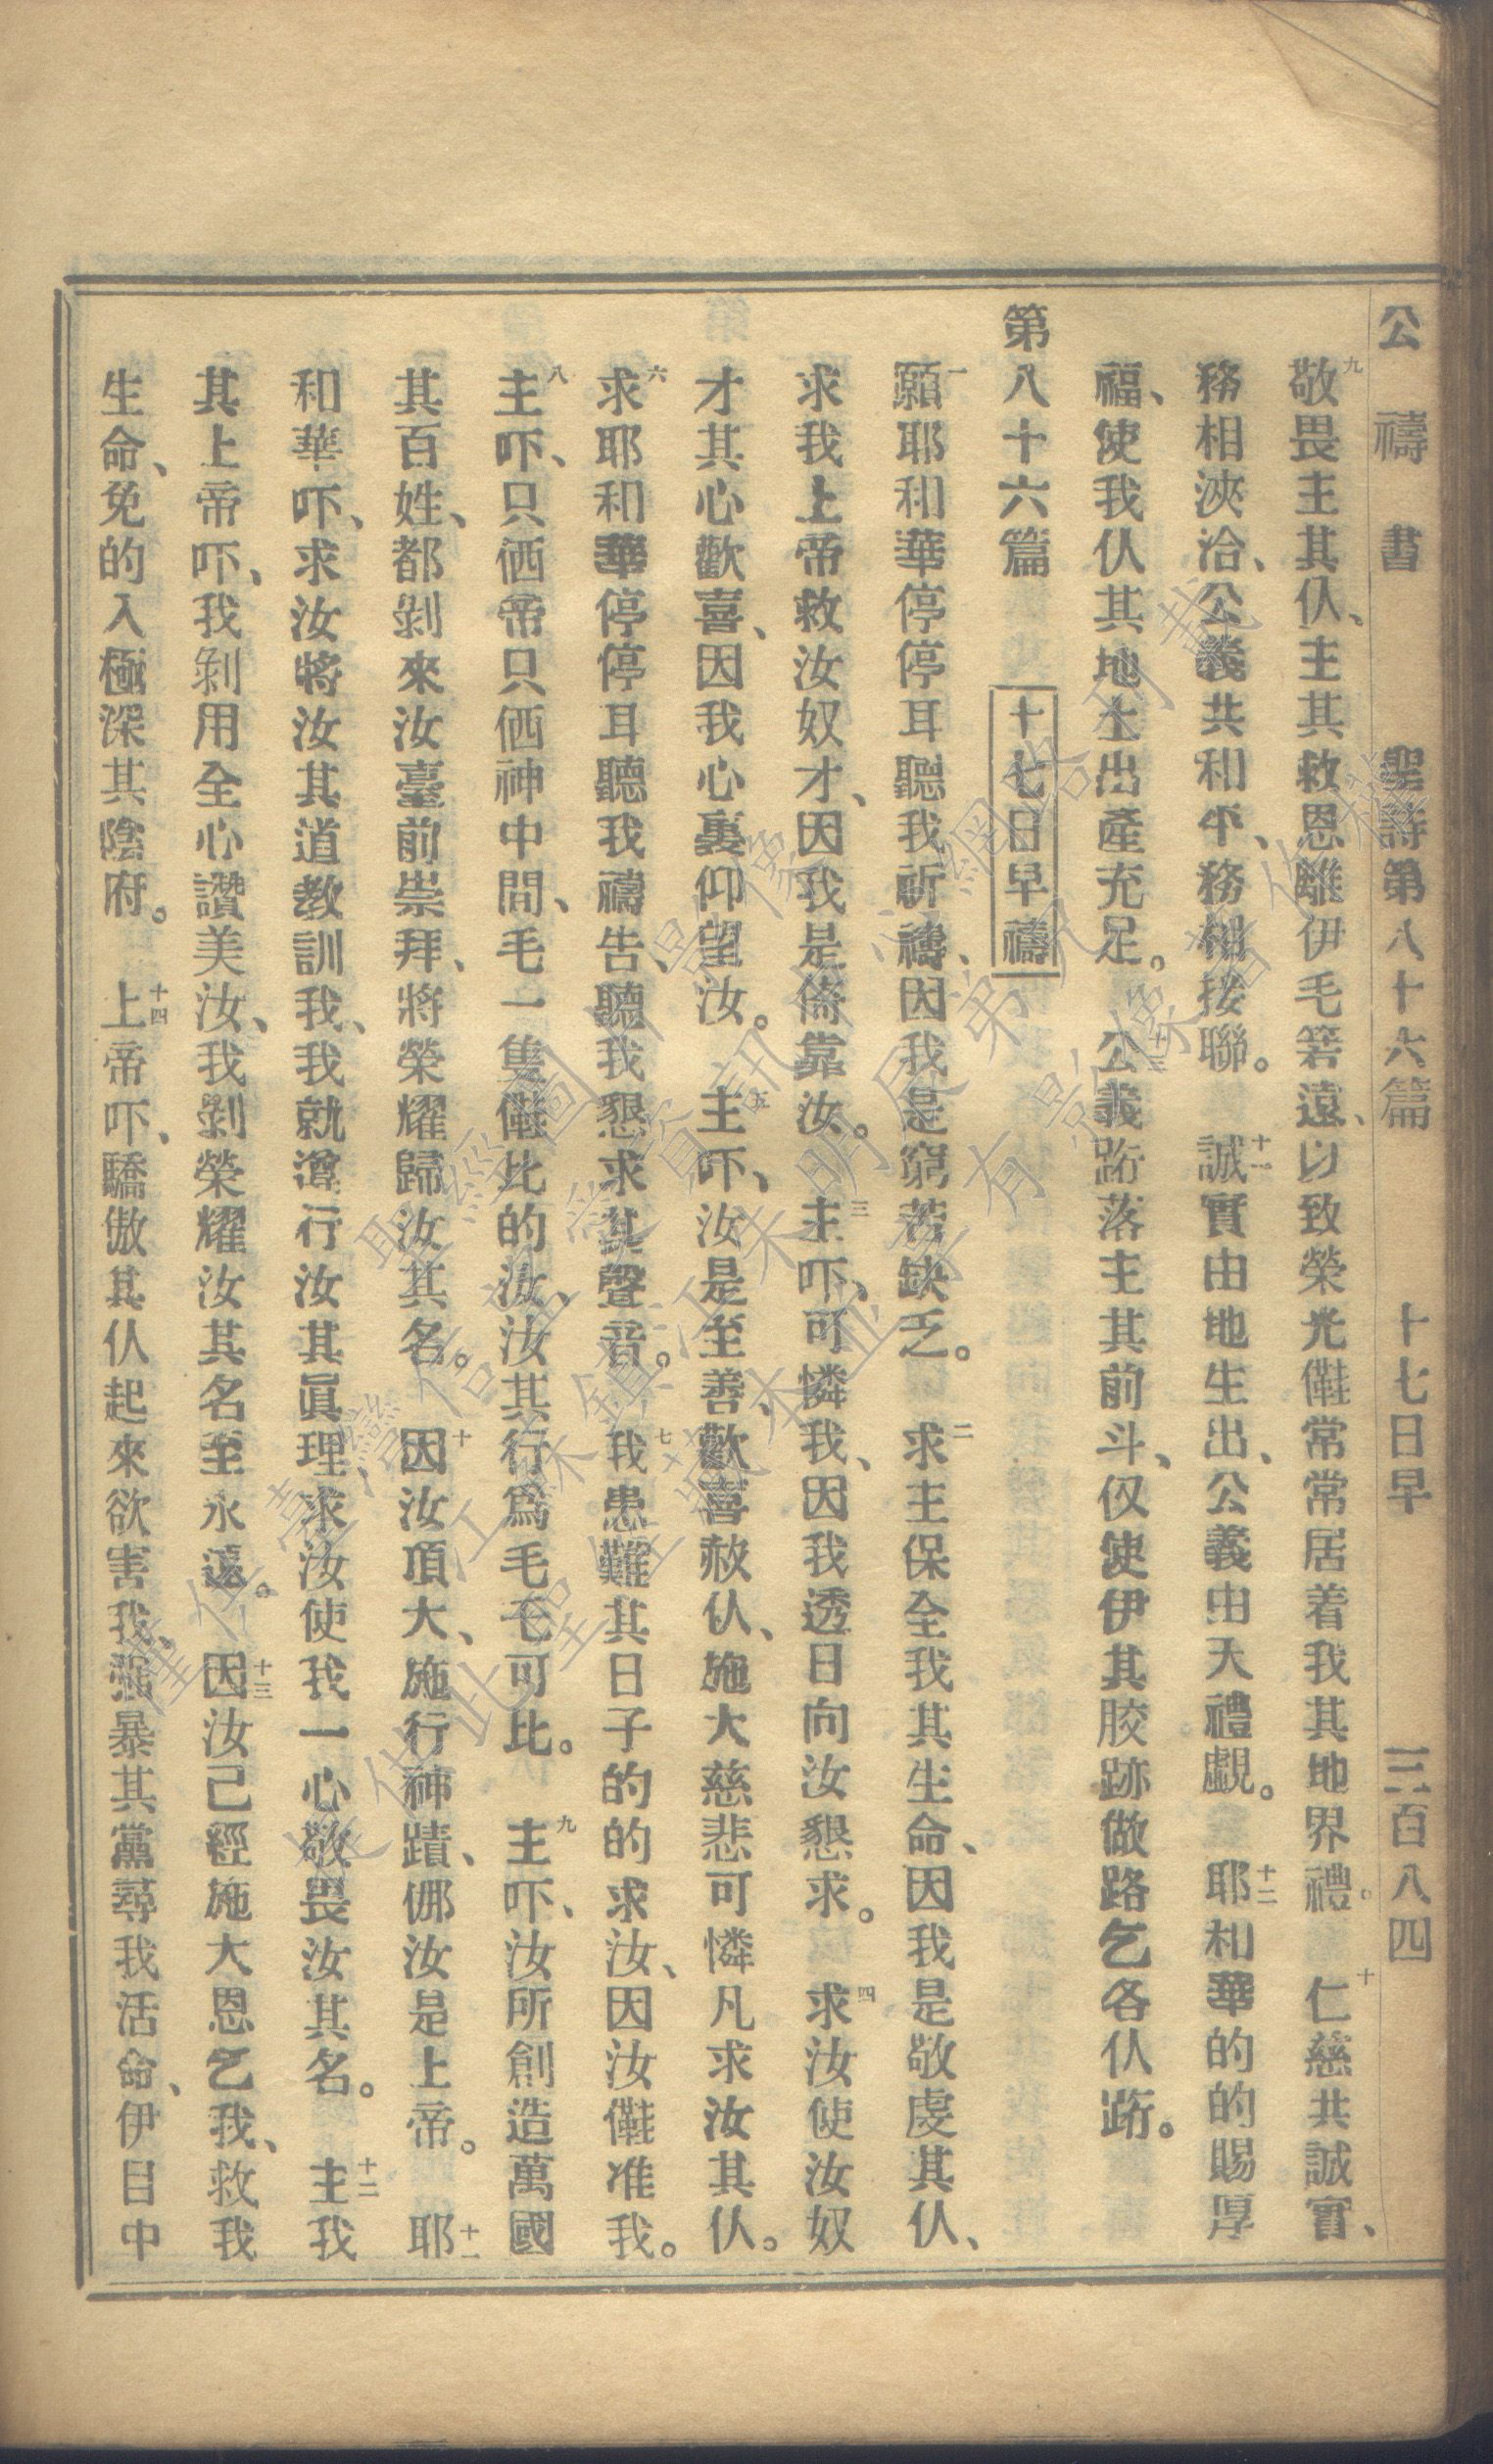 公禱書 聖詩第八十六篇 十七日早 三百八四
九敬畏主其仈、主其救恩離伊毛箬遠、以致榮光僫常常居着我其地界禮。十仁慈共誠實、
務相浹洽、公義共和平、務相接聯。十一誠實由地生出、公義由天禮覷。十二耶和華的的賜厚
福、使我仈其地土出產充足。十三公義跻落主其前斗、仅使伊其胶跡做路乞各仈跻。
第八十六篇 十七日早禱
一願耶和華停停耳聽我祈禱、因我是窮苦缺乏。二求主保全我其生命、因我是敬虔其仈、
求我上帝救汝奴才、因我是倚靠汝。三主吓、可憐我、因我透日向汝懇求。四求汝使汝奴
才其心歡喜、因我心裏仰望汝。五主吓、汝是至善、歡喜赦仈、施大慈悲可憐凡求汝其仈。
六求耶和華停停耳聽我禱告、聽我懇求其聲音。七我患難其日子的的求汝、因汝僫准我。
八主吓、只㑚帝只㑚神中間、毛一隻僫比的汝、汝其行爲毛毛可比。九主吓、汝所創造萬國
其百姓、都剝來汝臺前崇拜、將榮耀歸汝其名。十因汝頂大、施行神蹟、㑚汝是上帝。十一耶
和華吓、求汝將汝其道教訓我、我就遵行汝其眞理、求汝使我一心敬畏汝其名。十二主我
其上帝吓、我剝用全心讚美汝、我剝榮耀汝其名至永遠。十三因汝已經施大恩乞我、救我
生命、免的入極深其陰府。十四上帝吓、驕傲其仈起來欲害我、强暴其黨尋我活命、伊目中